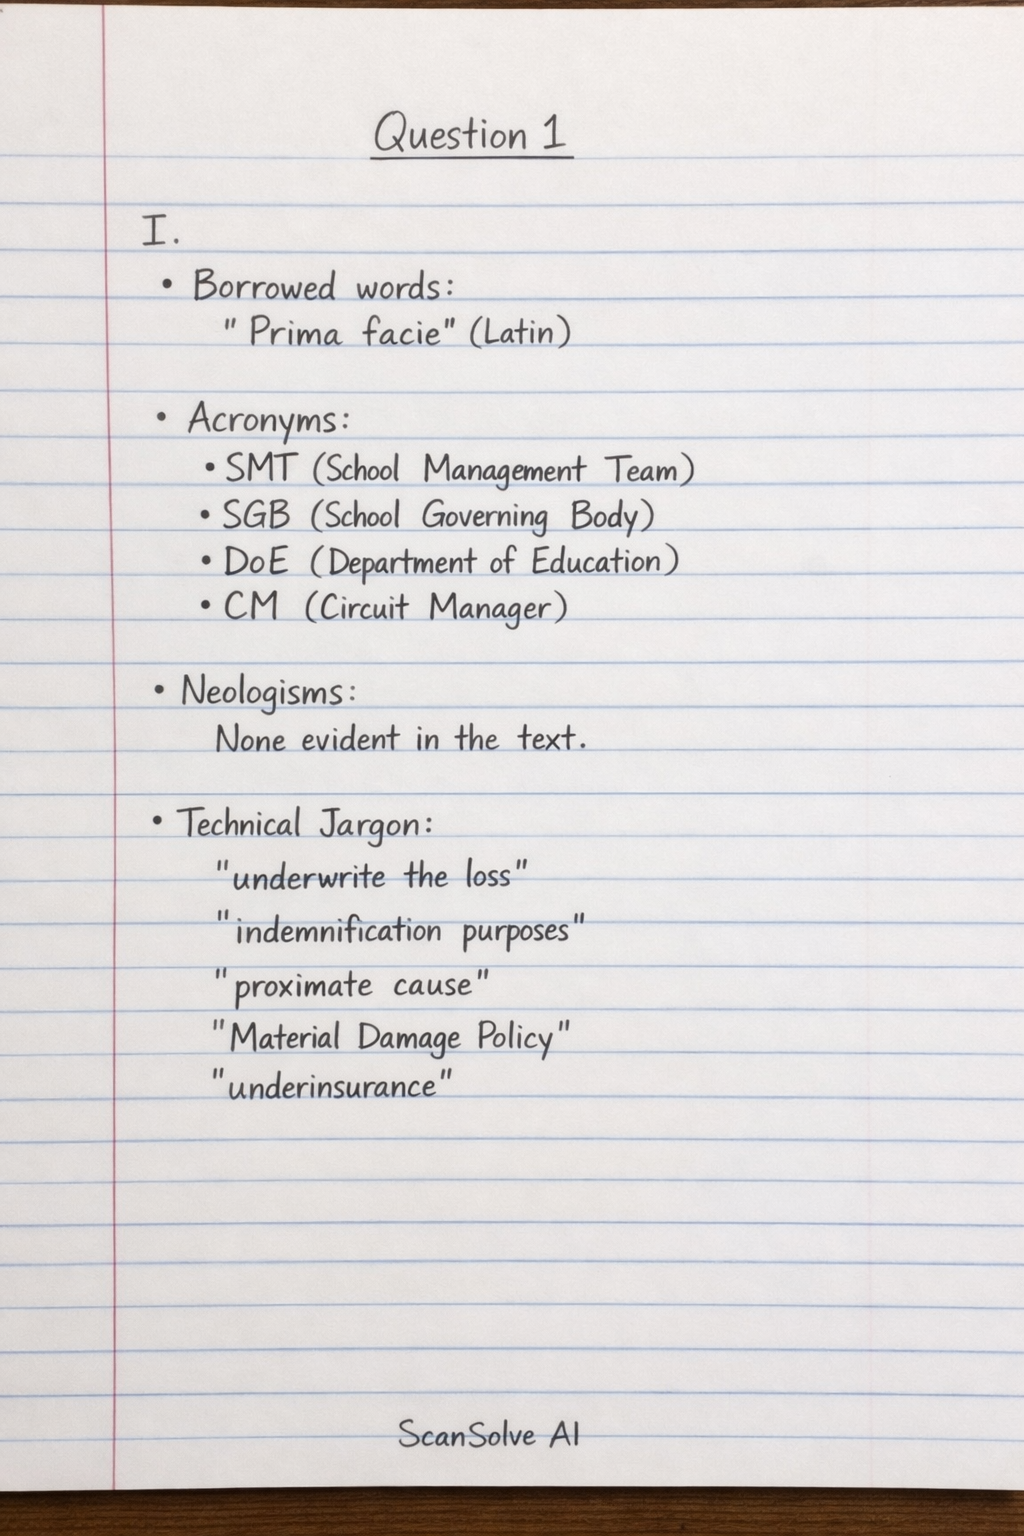 Question 1
I.
• Borrowed words:
" Prima facie" (Latin)
• Acronyms:
• SMT (School Management Team)
• SGB (School Governing Body)
• DoE (Department of Education)
• CM (Circuit Manager)
• Neologisms:
None evident in the text.
• Technical Jargon:
"underwrite the loss"
"indemnification purposes"
"proximate cause"
"Material Damage Policy"
"underinsurance"
ScanSolve AI